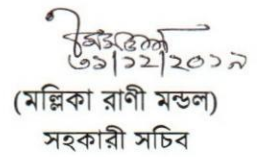 ৩১|১২|২০১৯
(মল্লিকা রাণী মন্ডল)
সহকারী সচিব